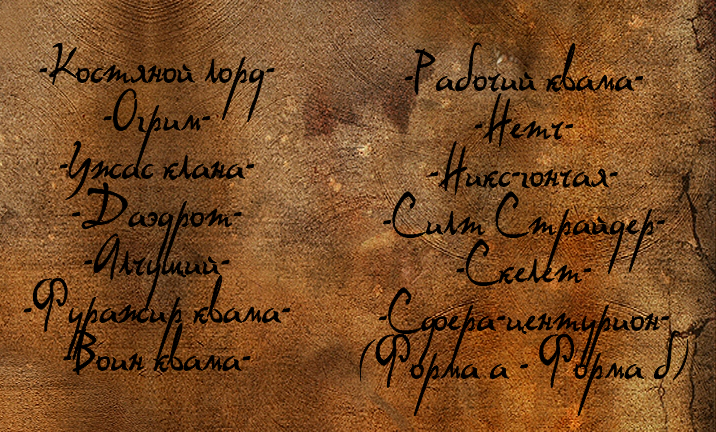 -Костяной лорд-
-Огрим-
-Ужас клана-
-Даэдрот-
-Алчущий-
-Фуражир квама-
-Воин квама-
-Рабочий квама-
-Нетч-
-Никс-гончая-
-Силт Страйдер-
-Скелет-
-Сфера-центурион-
(Форма а - Форма б)